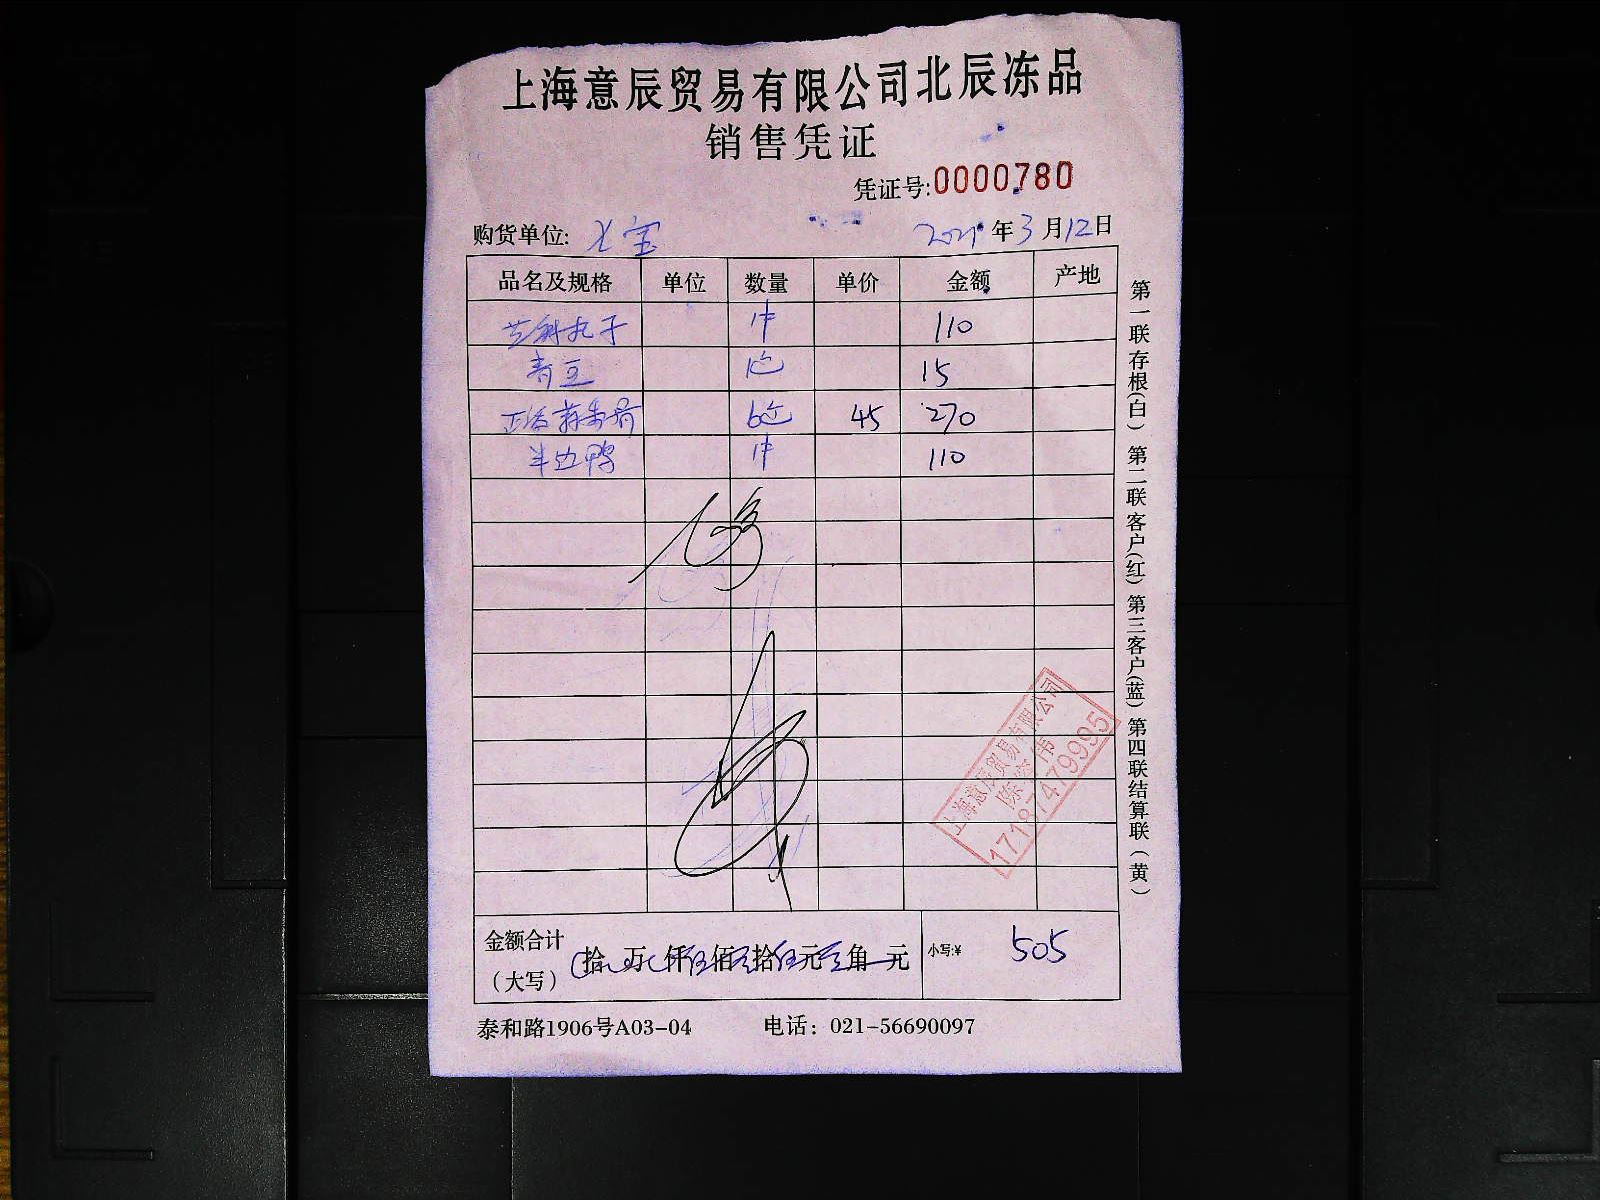 上海意辰贸易有限公司北辰冻品
销售凭证
凭证号:0000780
购货单位: 宝 2021年3月12日
品名及规格 单位 数量 单价 金额 产地
丸子 1件 110
青豆 1包 15
6包 45 270
半边鸭 1件 110
上海意辰贸易有限公司
陈 伟
17187479995
金额合计
(大写) 拾 万 仟伍佰零拾伍元零角 元 小写:¥ 505
泰和路1906号A03-04 电话：021-56690097
第一联存根(白) 第二联客户(红) 第三客户(蓝) 第四联结算联(黄)